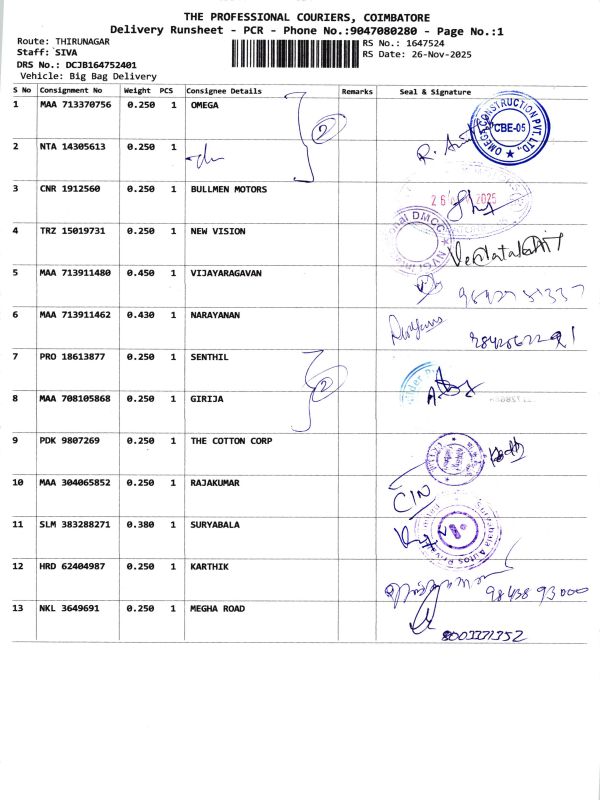 THE PROFESSIONAL COURIERS, COIMBATORE
Delivery Runsheet - PCR - Phone No.:9047080280 - Page No.:1
Route: THIRUNAGAR
Staff: SIVA
DRS No.: DCJB164752401
Vehicle: Big Bag Delivery
RS No.: 1647524
RS Date: 26-Nov-2025
S No Consignment No Weight PCS Consignee Details Remarks Seal & Signature
1 MAA 713370756 0.250 1 OMEGA
2
OMEGA CONSTRUCTION PVT. LTD.,
CBE-05
2 NTA 14305613 0.250 1
3 CNR 1912560 0.250 1 BULLMEN MOTORS
2025
4 TRZ 15019731 0.250 1 NEW VISION
DMCC
5 MAA 713911480 0.450 1 VIJAYARAGAVAN
6 MAA 713911462 0.430 1 NARAYANAN
7 PRO 18613877 0.250 1 SENTHIL
2
8 MAA 708105868 0.250 1 GIRIJA
9 PDK 9807269 0.250 1 THE COTTON CORP
10 MAA 304065852 0.250 1 RAJAKUMAR
CIN
11 SLM 383288271 0.380 1 SURYABALA
12 HRD 62404987 0.250 1 KARTHIK
98438 93000
13 NKL 3649691 0.250 1 MEGHA ROAD